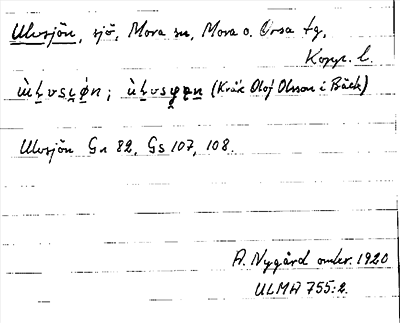 Ulvsjön, sjö, Mora sn, Mora o. Orsa tg,
Kopp. l.
(Kråk Olof Olsson i Bäck)
Ulvsjön Gn 82, Gs 107, 108.
A. Nygård omkr. 1920
ULMA 755:2.